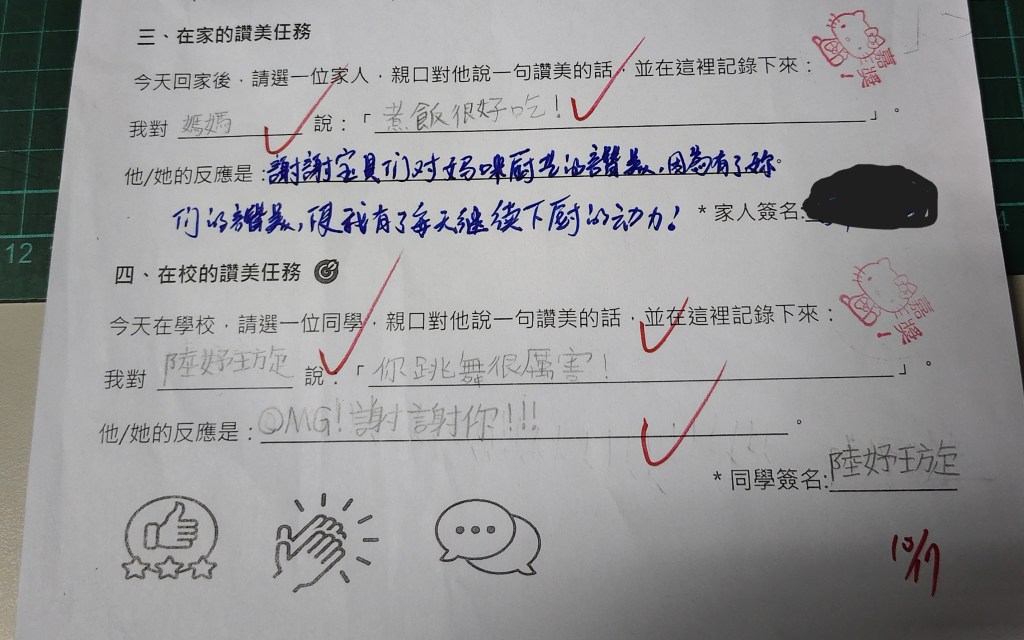 三、在家的讚美任務
嘉獎!
今天回家後，請選一位家人，親口對他說一句讚美的話，並在這裡記錄下來：
我對 媽媽 說：「煮飯很好吃！」。
他/她的反應是：謝謝宝貝们对妈咪厨艺的讚美，因為有了妳。
们的讚美，使我有了每天继续下厨的动力！ *家人簽名:
四、在校的讚美任務
嘉獎!
今天在學校，請選一位同學，親口對他說一句讚美的話，並在這裡記錄下來：
我對 陸妤璇 說：「你跳舞很厲害！」。
他/她的反應是：OMG!謝謝你!!!。
*同學簽名:陸妤璇
10/17
12